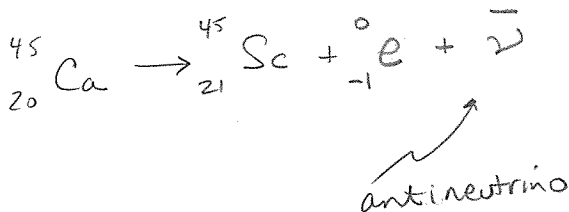 ⁴⁵₂₀Ca → ⁴⁵₂₁Sc + ⁰₋₁e + ν̅
antineutrino